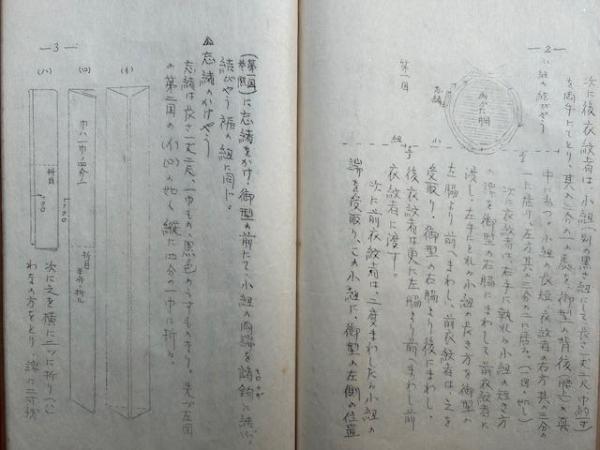 －2－
次に後衣紋者は、小組(別の黒き組にして長さ一丈二尺巾約寸)
を両手にてとり、其の三分の一の処を、御型の背後(腰上)の奥
中に当つ。小組の衣短は後衣紋者の右方其の三分の
一に居りて左方其の三分の二に居る。
小組の結びやう
次に後衣紋者は、右手に執れる小組の短き方
の端を御型の右脇にまわして前衣紋者に
渡し、左手に執れる小組の長き方を御型の
左脇より前へまわし、前衣紋者は、之を
受取り、御型の右脇より後にまわし、
後衣紋者は更に左脇より前へまわし前
衣紋者に渡す。
次に前衣紋者は、二度まわしたる小組の
端を受取り、この小組に、御型の左側の位置
第一図
忘緒
小組
－3－
(第一図参照)に忘緒をかけ、御型の前にて、小組の両端を諸鉤に結ぶ。
結びやう裾の紐に同じ。
忘緒のかけやう
忘緒は長さ一丈二尺、一巾もの、黒色のうすものなり。先づ左図
の第二図の(イ)(ロ)の如く縦に四分の一巾に折る。
(イ)
(ロ)
(ハ)
巾ハ一巾ノ四分ノ一
折目
次に之を横に二ッに折り(ハ)
わなの方をとり